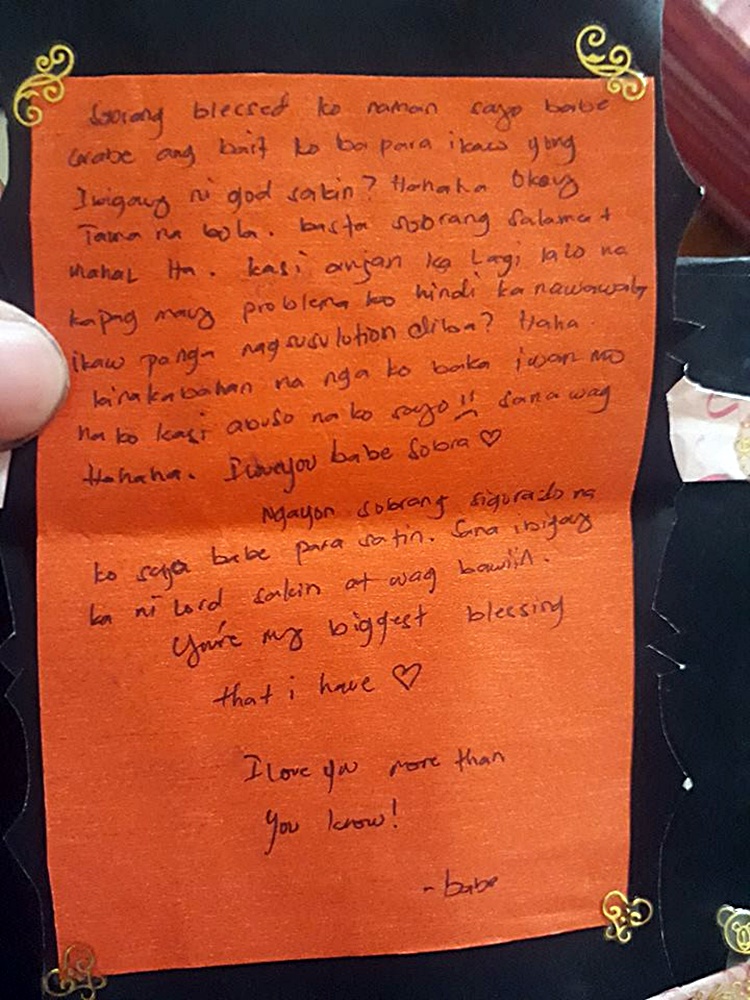 Sobrang blessed ko naman sayo babe
Grabe ang bait ko ba para ikaw yung
Ibigay ni god sakin? Hahaha Okay
Tama na bola. basta sobrang salamat
mahal Ha. kasi anjan ka Lagi lalo na
kapag may problema ko hindi ka nawawala
ikaw panga nagsusulution diba? Haha.
kinakabahan na nga ko baka iwan mo
na ko kasi abuso na ko sayo!! sana wag
Hahaha. I loveyou babe sobra ♡
Ngayon sobrang sigurado na
ko sayo babe para satin. Sana ibigay
ka ni Lord sakin at wag bawiin.
You're my biggest blessing
that i have ♡
I love you more than
you know!
- babe